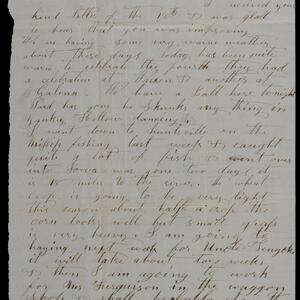 I received your
kind letter of the 18th & was glad
to hear that you was improving
We are having some very warm weather
about these days today has been quite
warm to celebrate the fourth they had
a celebration at & another at
Galena. We have a Ball here to night
Had has gone he Skunks any thing in
Yankey Hollow
I went down to huntsville on the
missip fishing last week & caught
quite a lot of fish went over
into Iowa was gone two days it
is 18 miles to the river. The wheat
crop is going to be very light
this season about half a crop the
corn looks well but small grain
is very heavy I am going to
haying next week for Uncle
it will take about two weeks
& then I am agoing to work
for Mr Ferguson in the waggon
shop & shall